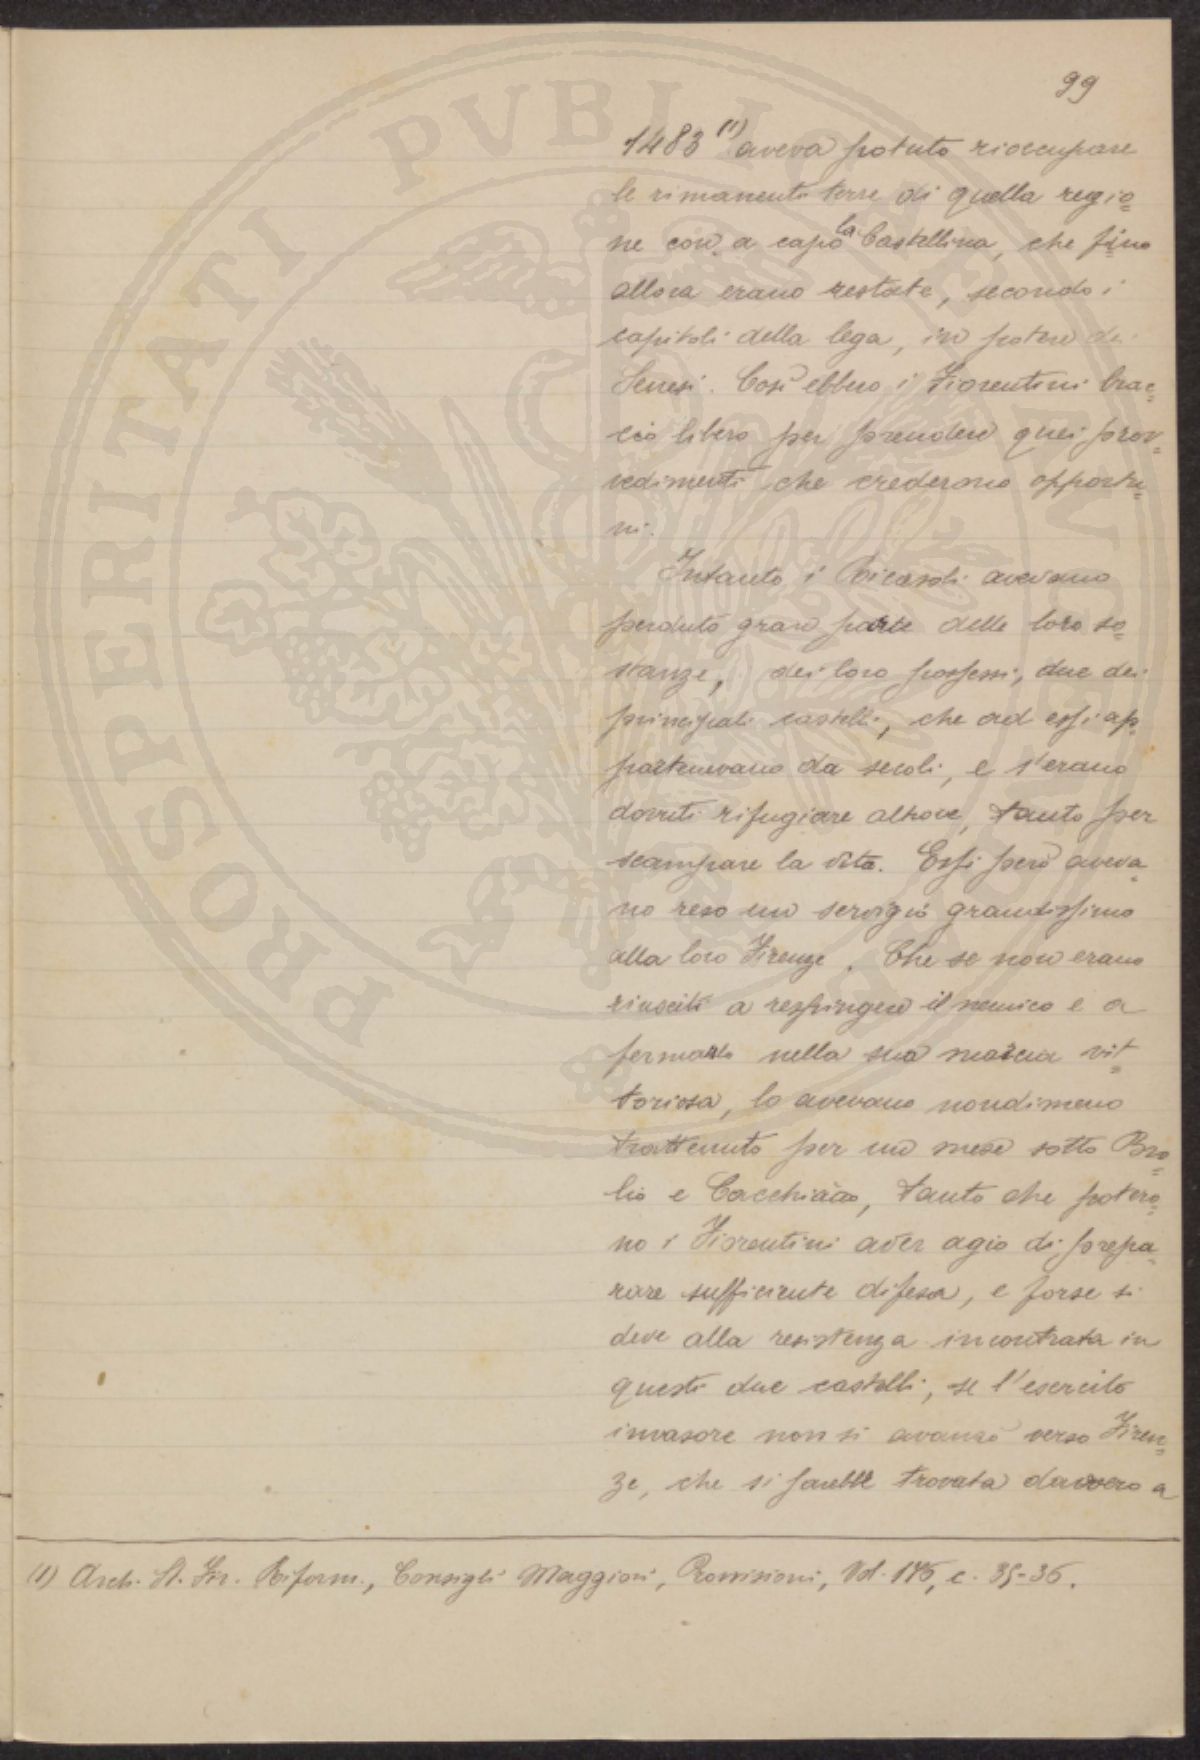 99
1483 (1) aveva potuto rioccupare
le rimanenti terre di quella regio=
ne con a capo la Castellina, che fino
allora erano restate, secondo i
capitoli della lega, in potere dei
Senesi. Così ebbero i Fiorentini brac=
cio libero per prendere quei prov=
vedimenti che crederono opportu=
ni.
Intanto i Ricasoli avevano
perduto gran parte delle loro so=
stanze, dei loro possessi, due dei
principali castelli, che ad essi ap=
partenevano da secoli, e s'erano
dovuti rifugiare altrove, tanto per
scampare la vita. Essi però aveva=
no reso un servigio grandissimo
alla loro Firenze. Che se non erano
riusciti a respingere il nemico e a
fermarlo nella sua marcia vit=
toriosa, lo avevano nondimeno
trattenuto per un mese sotto Bro=
lio e Cacchiano, tanto che potero=
no i Fiorentini aver agio di prepa=
rare sufficiente difesa, e forse si
deve alla resistenza incontrata in
questi due castelli, se l'esercito
invasore non si avanzò verso Firen=
ze, che si sarebbe trovata davvero a
(1) Arch. St. Fir. Riform., Consigli Maggiori, Provvisioni, Vol. 175, c. 35-36.
PROSPERITATI PVBLICAE